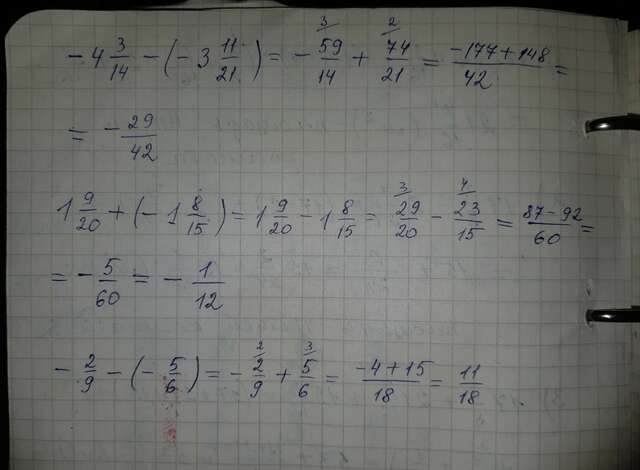 -4 3/14 - (-3 11/21) = - 59/14 (3/ + 74/21 (2/ = (-177+148)/42 =
= - 29/42
1 9/20 + (-1 8/15) = 1 9/20 - 1 8/15 = 29/20 (3/ - 23/15 (4/ = (87-92)/60 =
= - 5/60 = - 1/12
- 2/9 - (- 5/6) = - 2/9 (2/ + 5/6 (3/ = (-4+15)/18 = 11/18